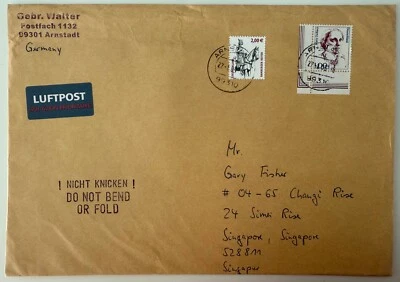 Gebr. Walter
Postfach 1132
99301 Arnstadt
Germany
2,00 €
LUFTPOST
! NICHT KNICKEN !
DO NOT BEND
OR FOLD
Mr.
Gary Fisher
# 04-65 Changi Rise
24 Simei Rise
Singapore, Singapore
528811
Singapur